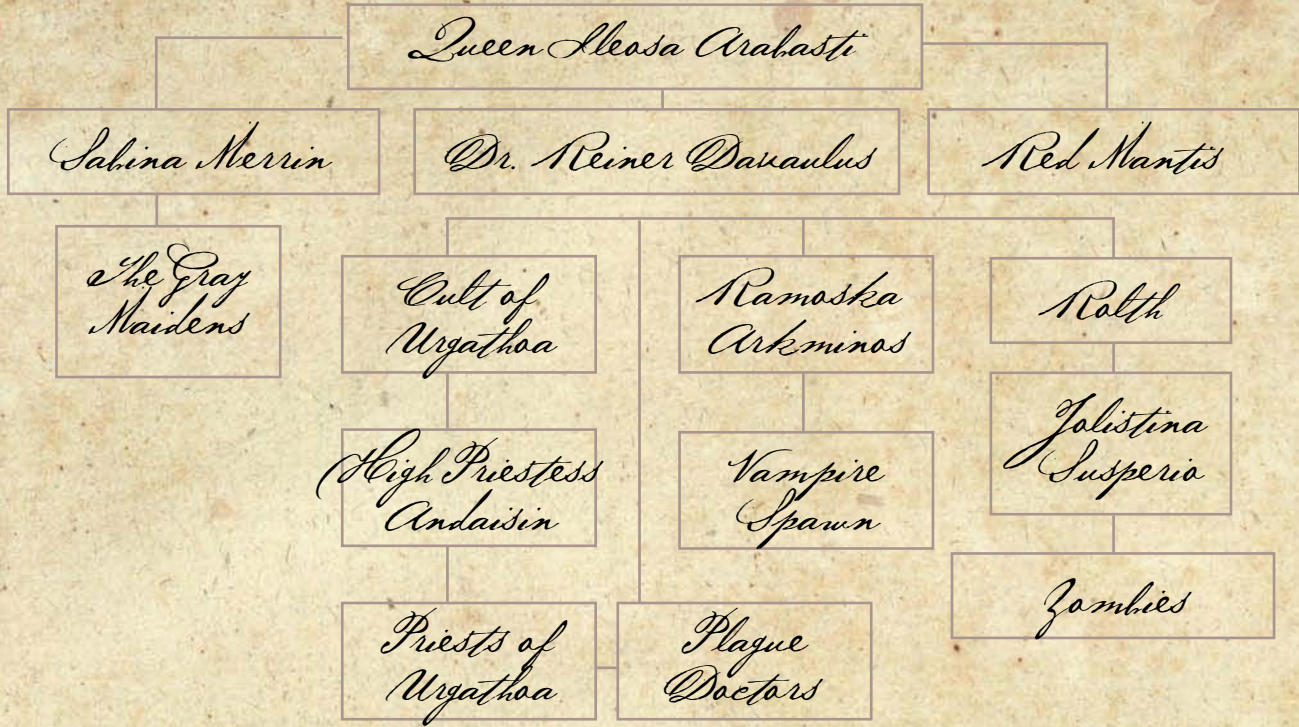 Queen Ileosa Arabasti
Sabina Merrin
Dr. Reiner Davaulus
Red Mantis
The Gray
Maidens
Cult of
Urgathoa
Ramoska
Arkminos
Rolth
High Priestess
Andaisin
Vampire
Spawn
Jolistina
Susperio
Zombies
Priests of
Urgathoa
Plague
Doctors